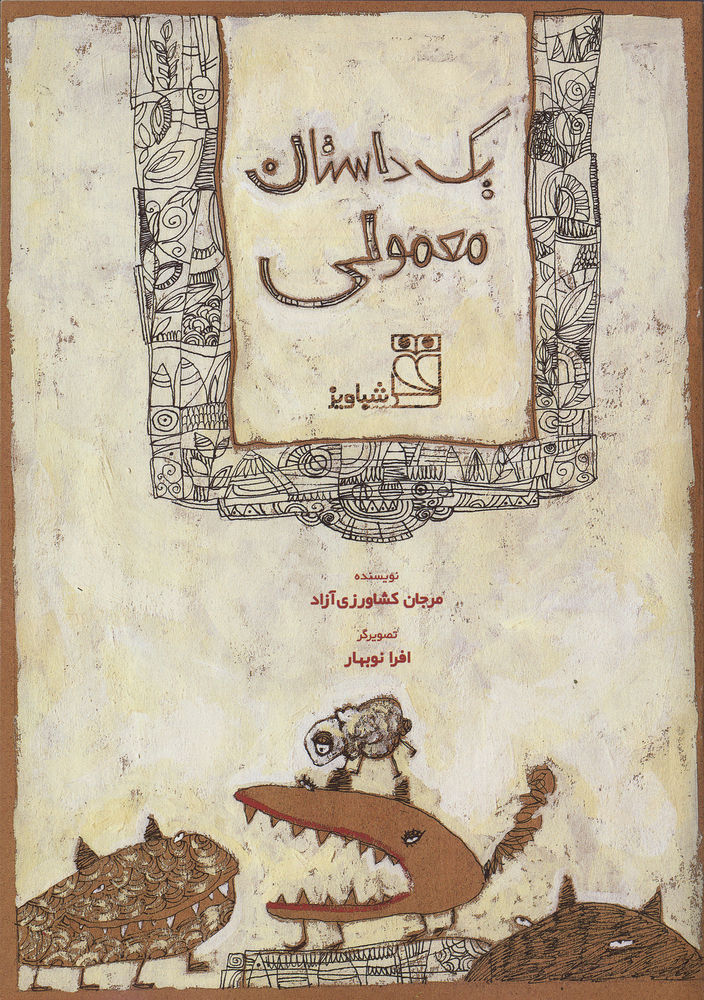 یک داستان
معمولی
شباویز
نویسنده
مرجان کشاورزی‌آزاد
تصویرگر
افرا نوبهار